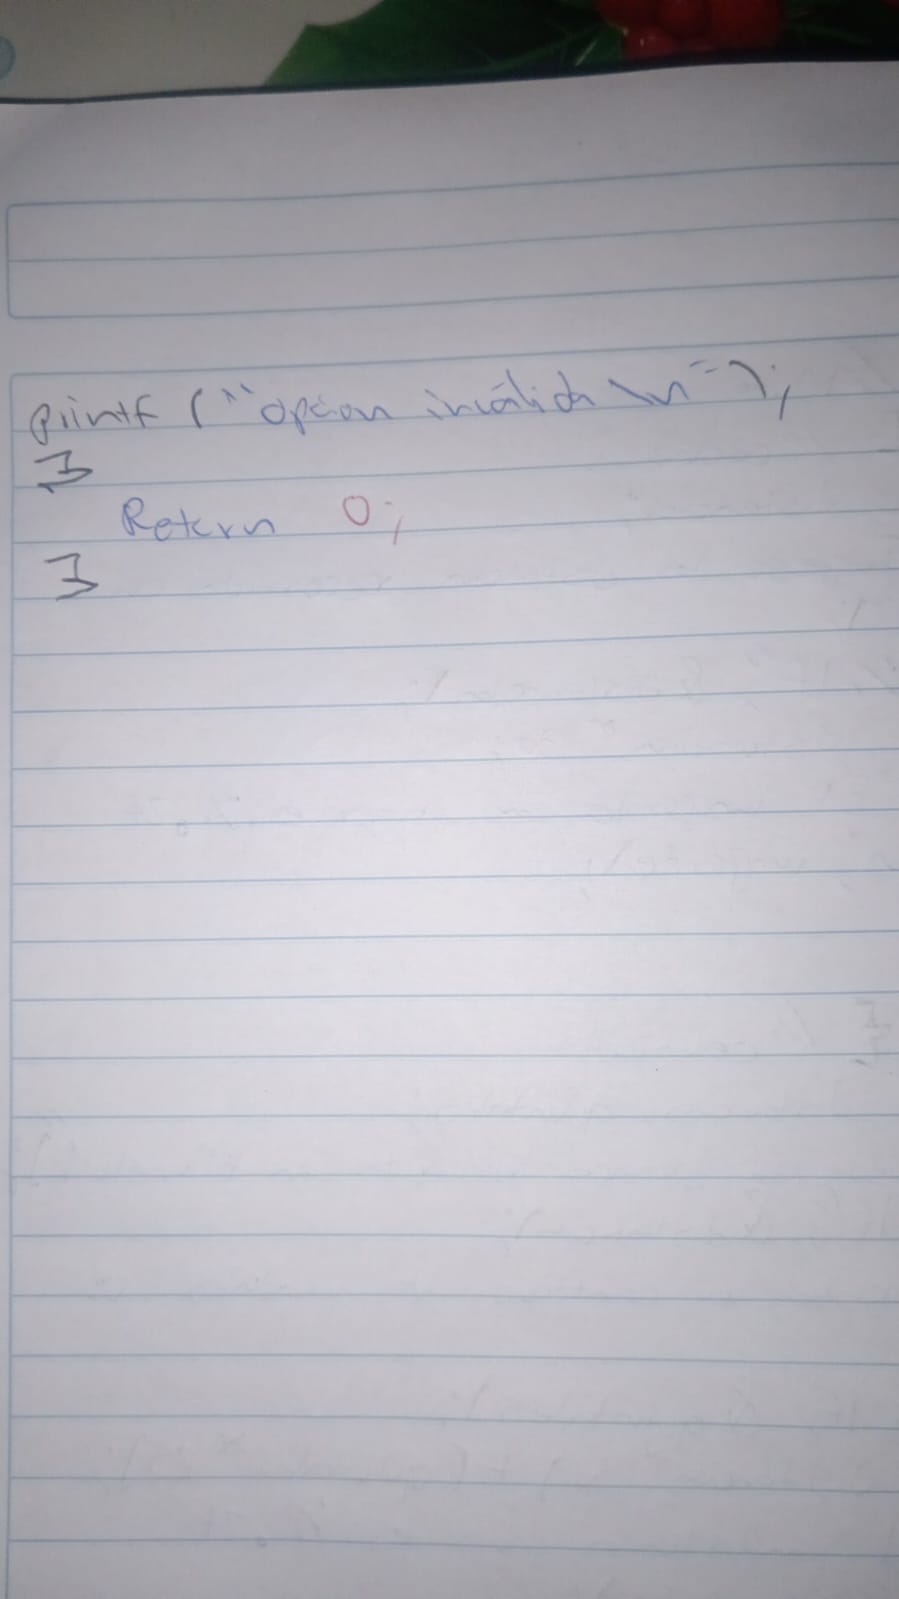 printf ("opcion inválida \n");
}
Return 0;
}